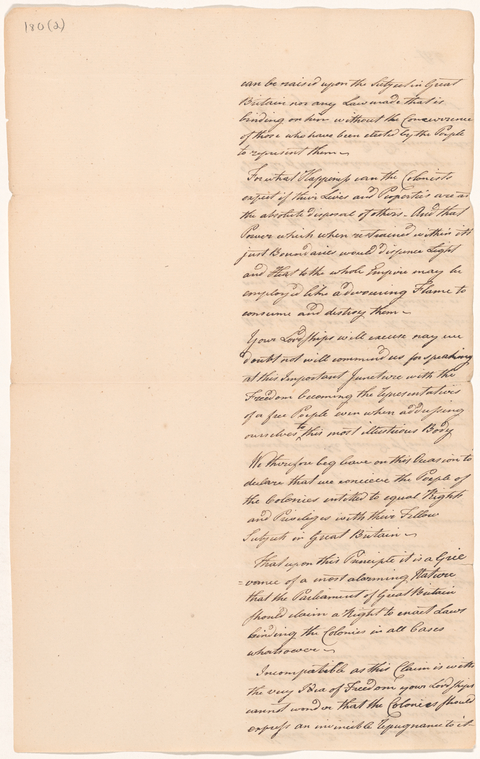 180(2)
can be raised upon the Subject in Great
Britain nor any Law made that is
binding on him without the Concurrence
of those who have been elected by the People
to represent them
For what Happiness can the Colonists
expect if their Lives and Properties are at
the absolute disposal of others. And that
Power which when restrained within its
just Boundaries would dispence Light
and Heat to the whole Empire may be
employed like a devouring Flame to
consume and destroy them
Your Lordships will excuse nay we
doubt not will commend us for speaking
at this Important Juncture with the
Freedom becoming the representatives
of a free People even when addressing
ourselves to this most illustrious Body
We therefore beg leave on this Occasion to
declare that we conceive the People of
the Colonies intitled to equal Rights
and Privileges with their Fellow
Subjects in Great Britain
That upon this Principle it is a Grie
=vance of a most alarming Nature
that the Parliament of Great Britain
should claim a Right to enact Laws
binding the Colonies in all Cases
whatsoever
Incompatible as this Claim is with
the very Idea of Freedom your Lordships
cannot wonder that the Colonies should
express an invincible repugnance to it